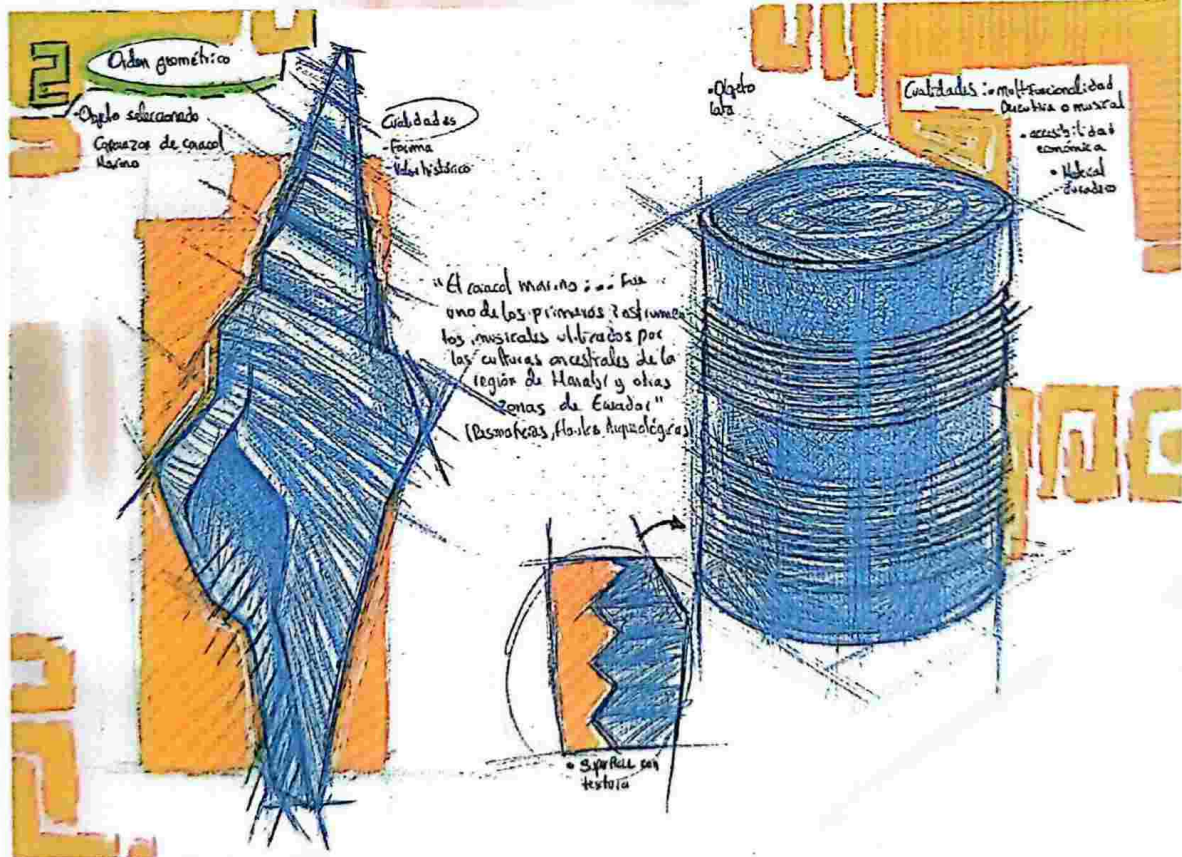 2
Orden geométrico
-Objeto seleccionado
Caparazon de caracol
Marino
Cualidades
-Forma
-Valor histórico
"El caracol marino : ... Fue
uno de los primeros instrumen-
tos musicales utilizados por
las culturas ancestrales de la
región de Manabí y otras
zonas de Ecuador"
Flautas Arqueológicas)
• Superficie con
textura
• Objeto
lata
Cualidades : • multifuncionalidad
o musical
• accesibilidad
económica
• Material
duradero